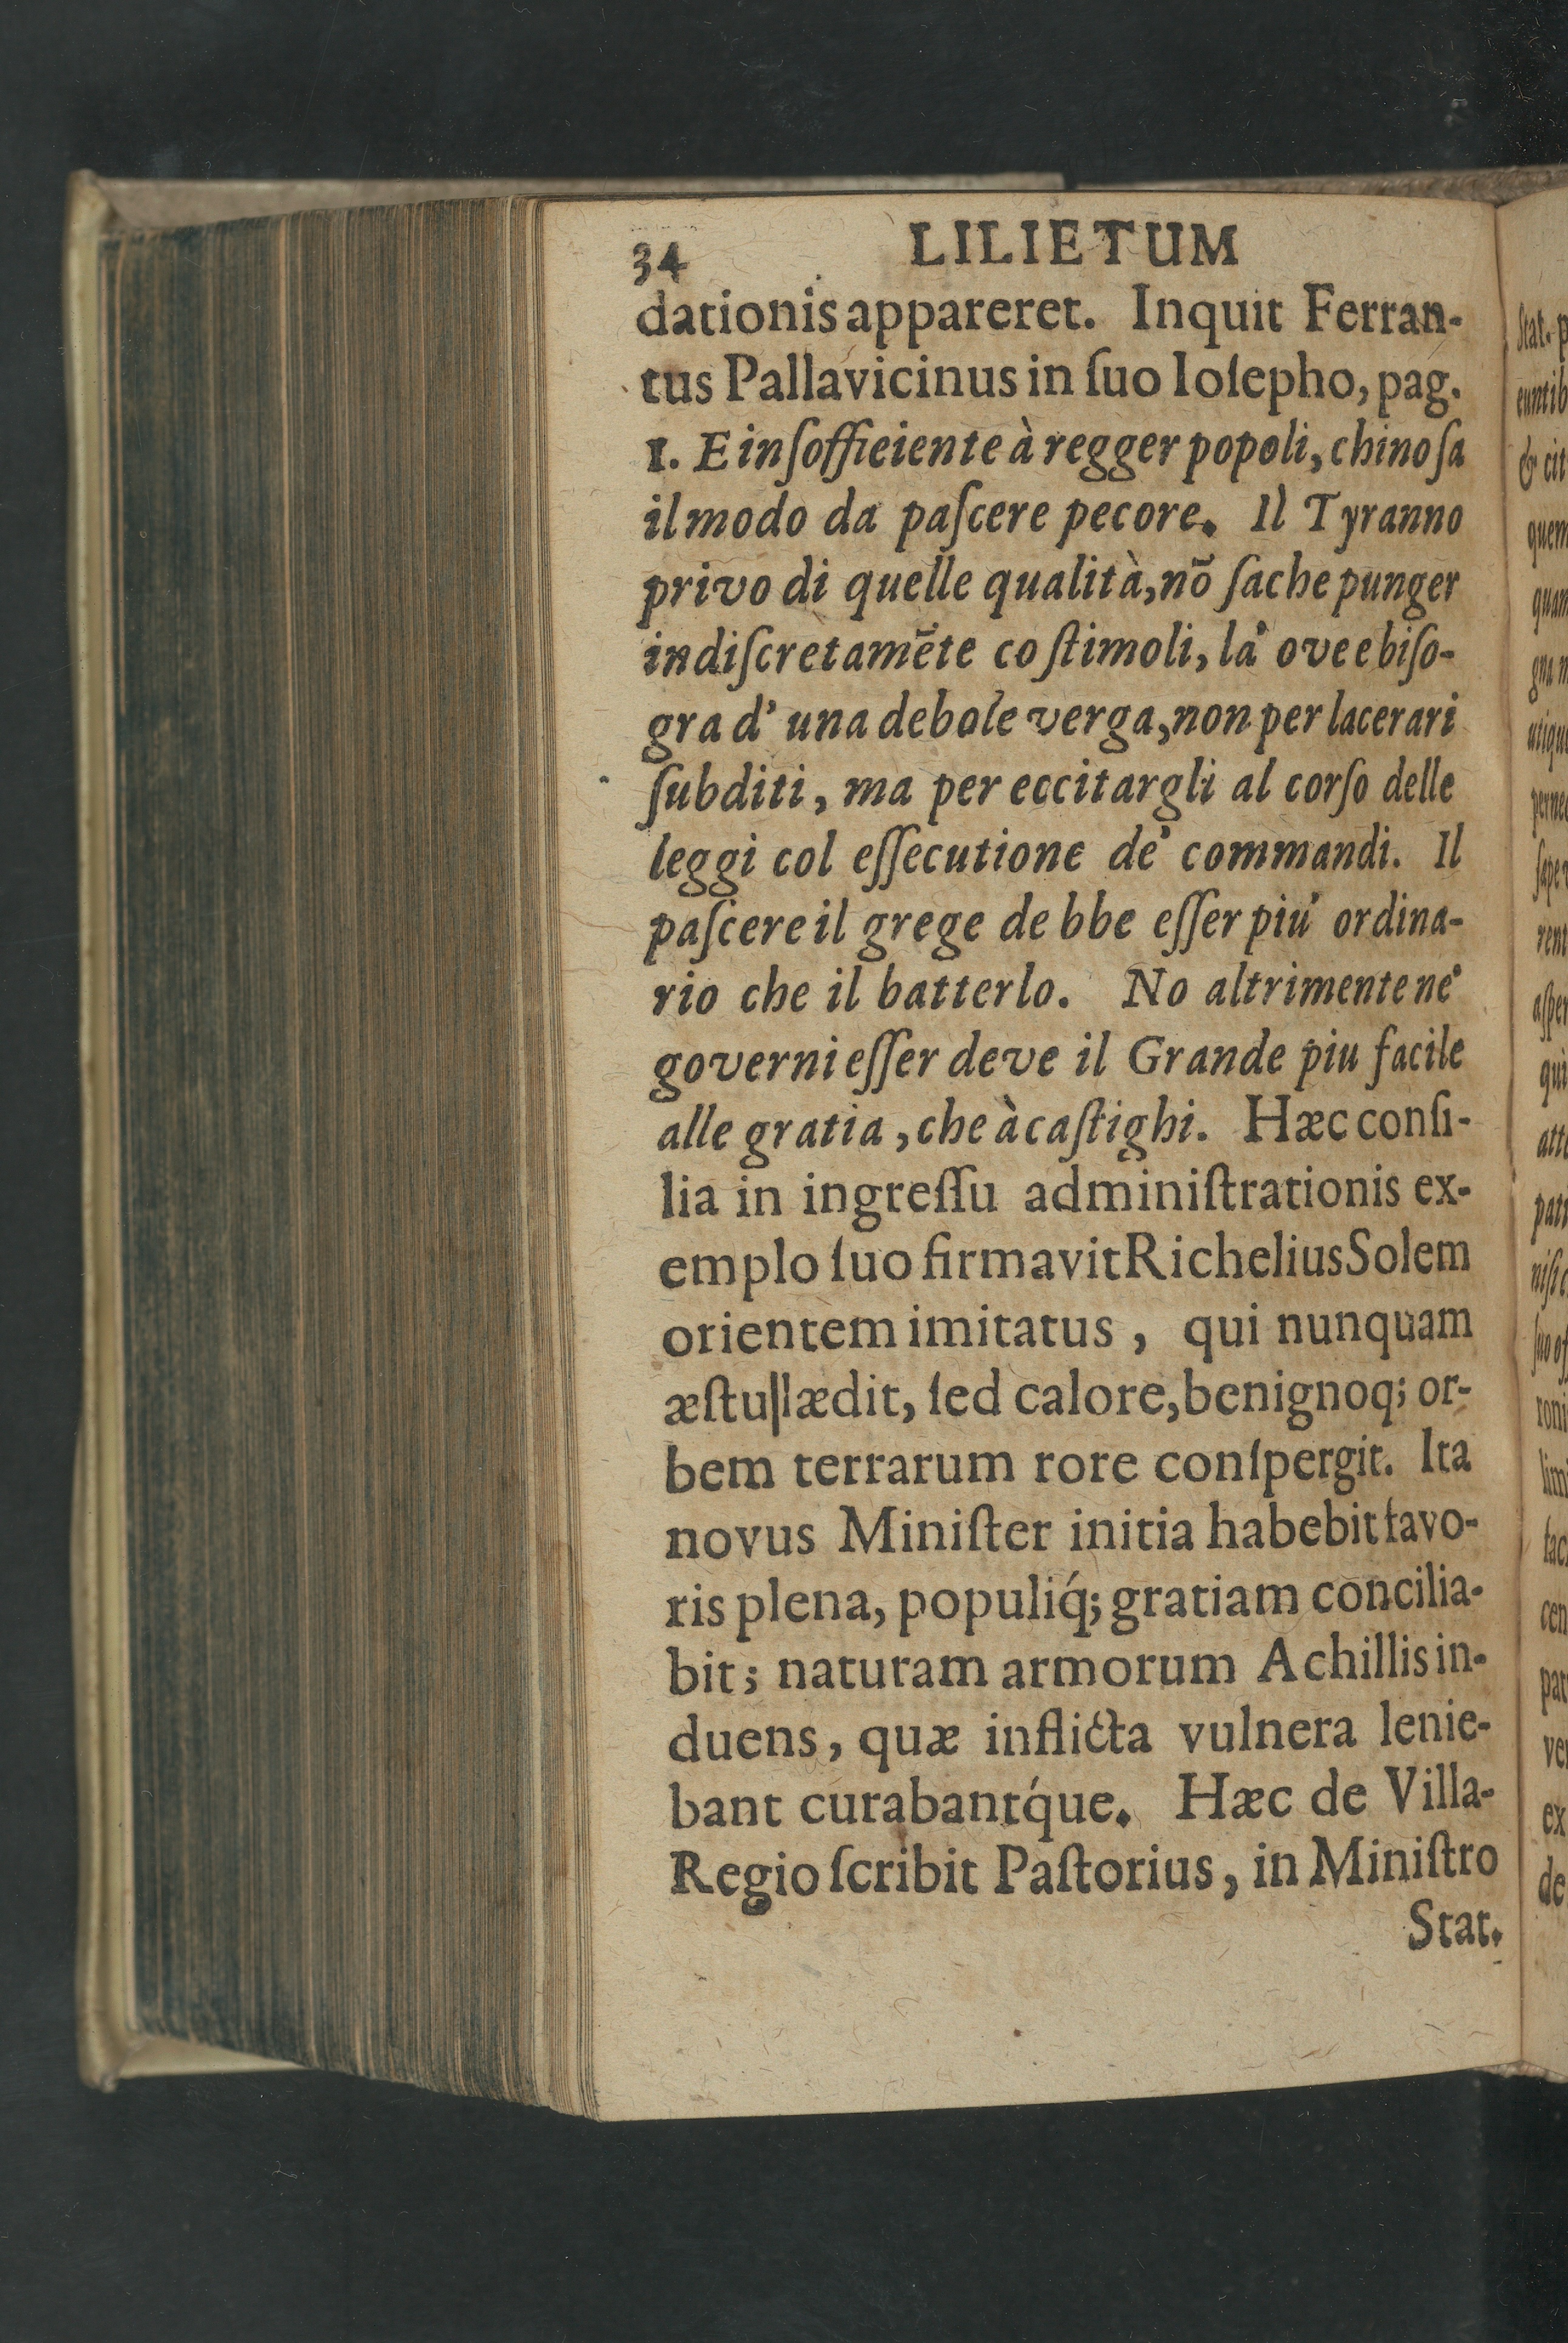 34 LILIETUM
dationis appareret. Inquit Ferran-
tus Pallavicinus in ſuo Ioſepho, pag.
1. E inſoffieiente à regger popoli, chi no ſa
il modo da paſcere pecore. Il Tyranno
privo di quelle qualità, nõ ſa che punger
indiſcretamẽte co ſtimoli, la' ove e biſo-
gra d' una debole verga, non per lacerari
ſubditi, ma per eccitargli al corſo delle
leggi col eſſecutione de' commandi. Il
paſcere il grege de bbe eſſer piu' ordina-
rio che il batterlo. No altrimente ne'
governi eſſer deve il Grande piu facile
alle gratia, che à caſtighi. Hæc conſi-
lia in ingreſſu adminiſtrationis ex-
emplo ſuo firmavit Richelius Solem
orientem imitatus, qui nunquam
æſtu lædit, ſed calore, benignoq; or-
bem terrarum rore conſpergit. Ita
novus Miniſter initia habebit favo-
ris plena, populiq́; gratiam concilia-
bit; naturam armorum Achillis in-
duens, quæ inflicta vulnera lenie-
bant curabantq́ue. Hæc de Villa-
Regio ſcribit Paſtorius, in Miniſtro
Stat.